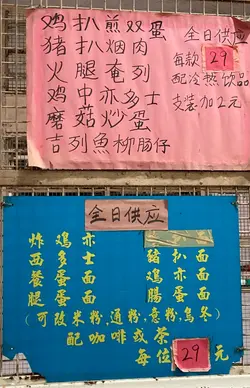 鸡扒煎双蛋
猪扒烟肉
火腿奄列
鸡中亦多士
磨菇炒蛋
吉列魚柳肠仔
全日供应
每款29
配冷热饮品
支装加2元
全日供应
炸鸡亦面
西多士
餐蛋面
腿蛋面
豬扒面
鸡亦面
腸蛋面
(可改米粉,通粉,意粉,烏冬)
配咖啡或茶
每位29元